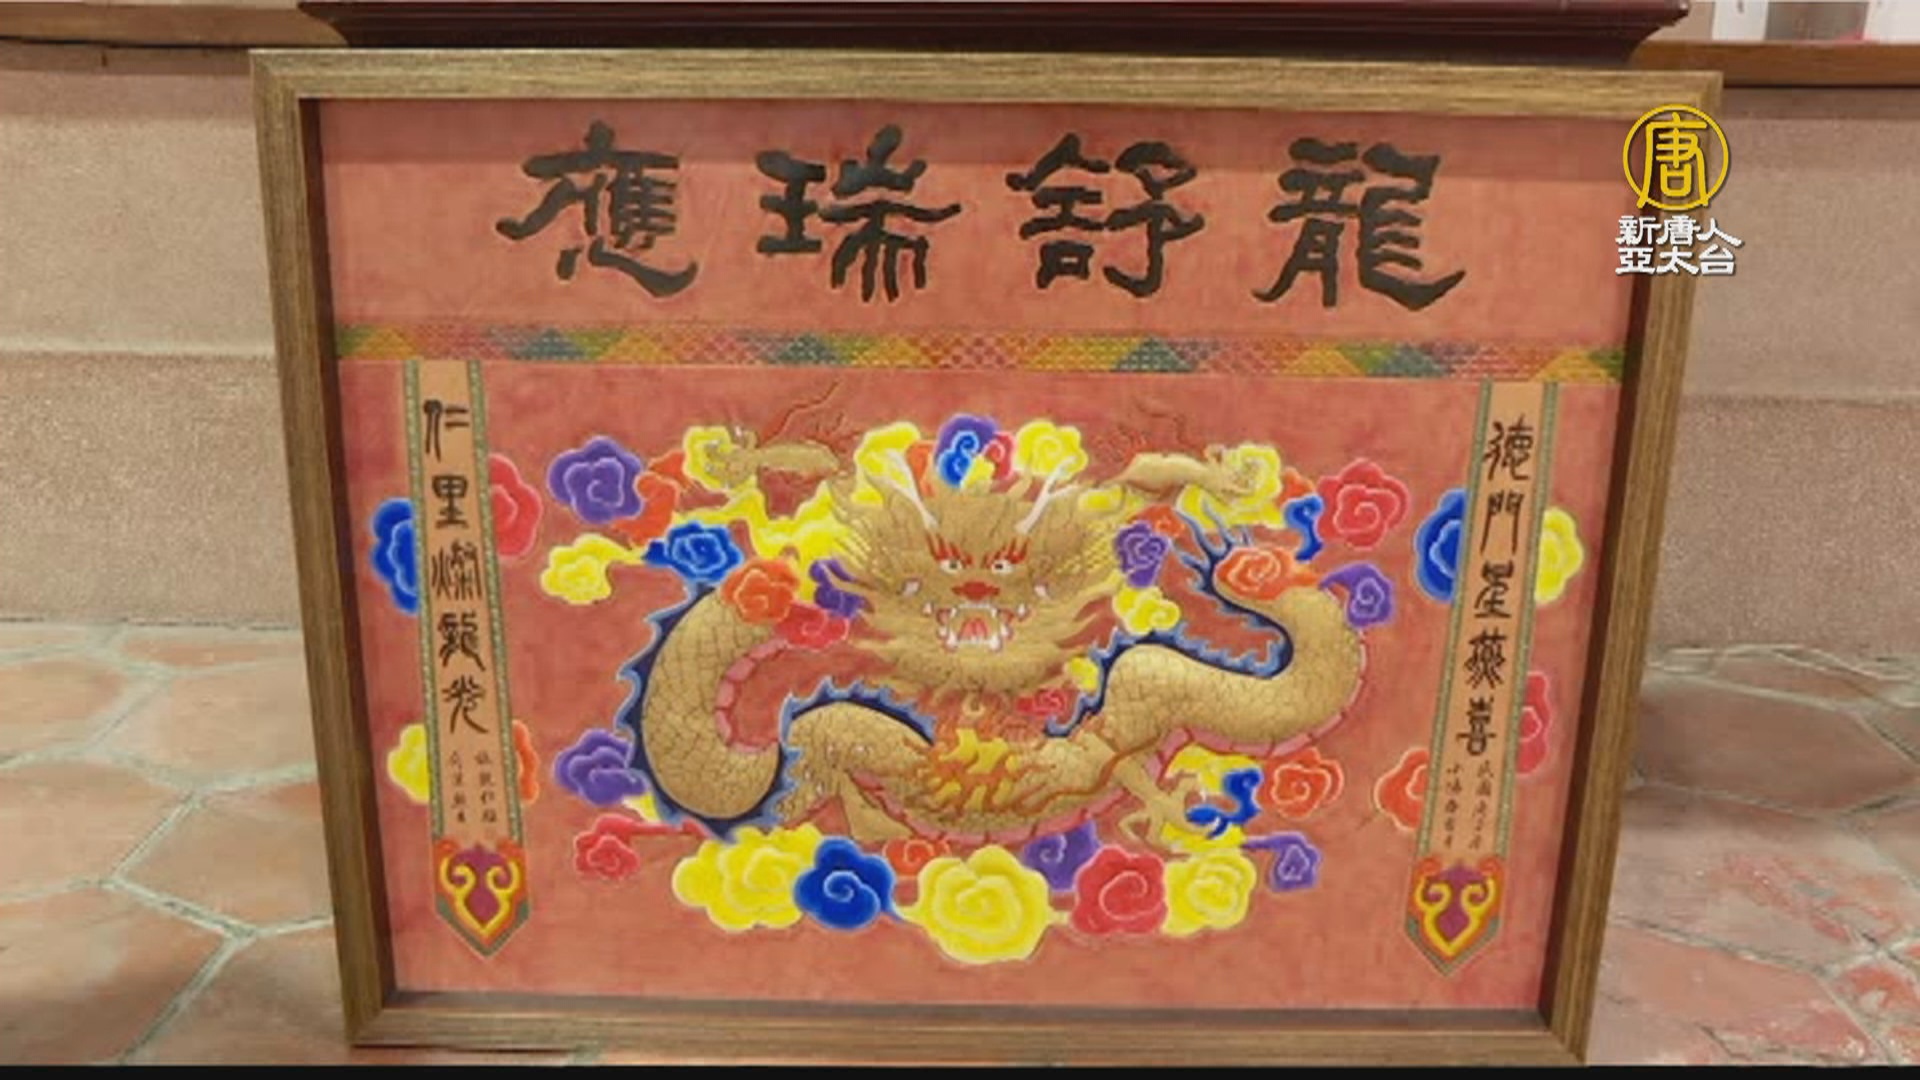 龍舒瑞應
德門星燕喜
仁里燦龍光
唐
新唐人
亞太台